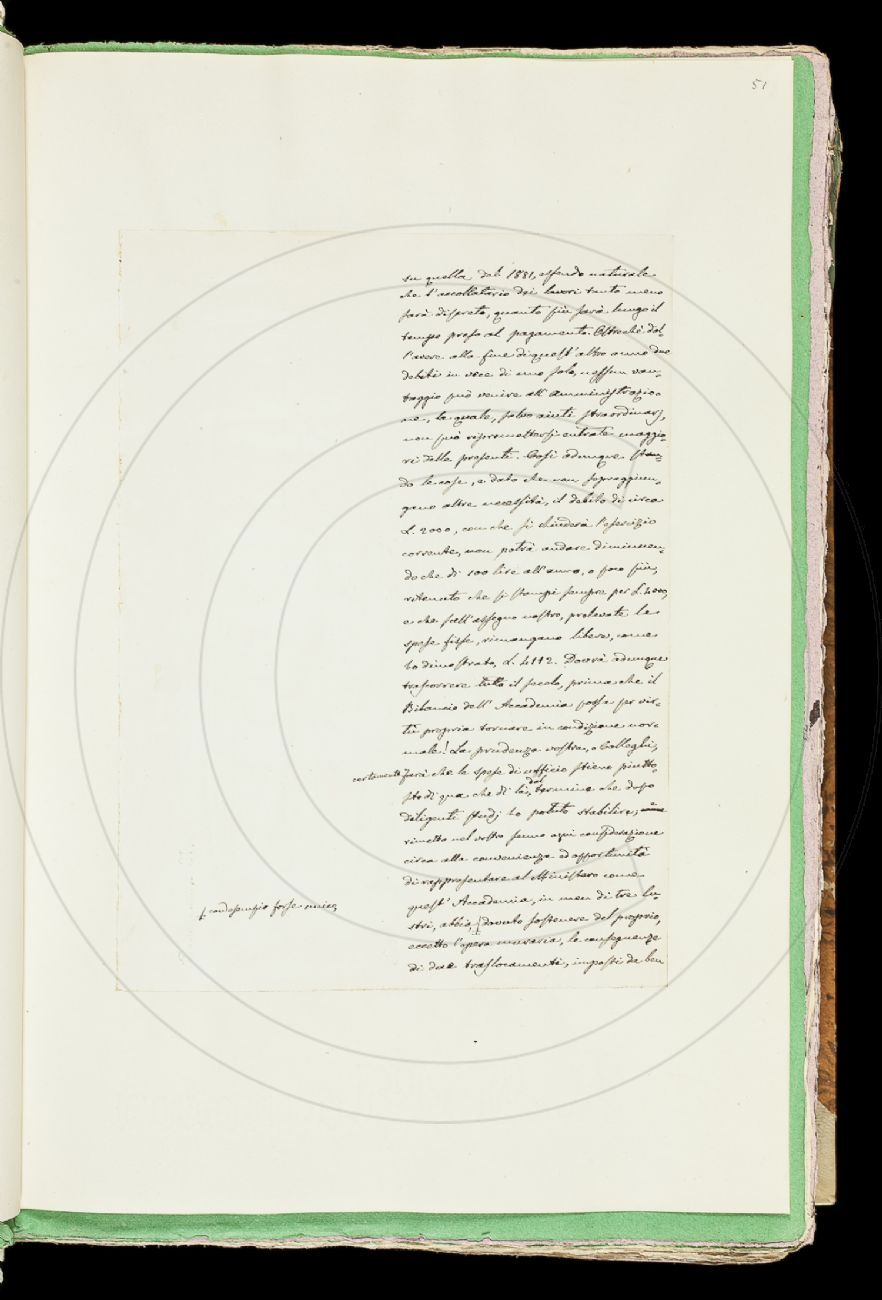 51
su quella del 1881, essendo naturale
che l'accollatario dei lavori tanto meno
sarà discreto, quanto più sarà lungo il
tempo preso al pagamento. Oltrechè dal-
l'avere alla fine di quest'altro anno due
debiti in vece di uno solo, nessun van-
taggio può venire all'amministrazio-
ne, la quale, salvo aiuti straordinarj,
non può ripromettersi entrate maggio-
ri delle presenti. Così adunque stan-
do le cose, e dato che non sopraggiun-
gano altre necessità, il debito di circa
L. 2000, con che si chiuderà l'esercizio
corrente, non potrà andare diminuen-
do che di 100 lire all'anno, o poco più,
ritenuto che si stampi sempre per L. 4000,
e che sull'assegno nostro, prelevate le
spese fisse, rimangano libere, come
ho dimostrato, L. 4112. Dovrà adunque
trascorrere tutto il secolo, prima che il
Bilancio dell'Accademia possa per vir-
tù propria tornare in condizione nor-
male! La prudenza vostra, o Colleghi,
certamente farà che le spese di ufficio stieno piutto-
sto di qua che di là, dal termine che dopo
diligenti studj ho potuto stabilire, e
rimetto nel vostro senno ogni considerazione
circa alla convenienza ed opportunità
di rappresentare al Ministero come
quest'Accademia, in men di tre lu-
stri, abbia, dovuto sostenere del proprio,
con esempio forse unico,
eccetto l'opera muraria, le conseguenze
di due traslocamenti, imposti da ben